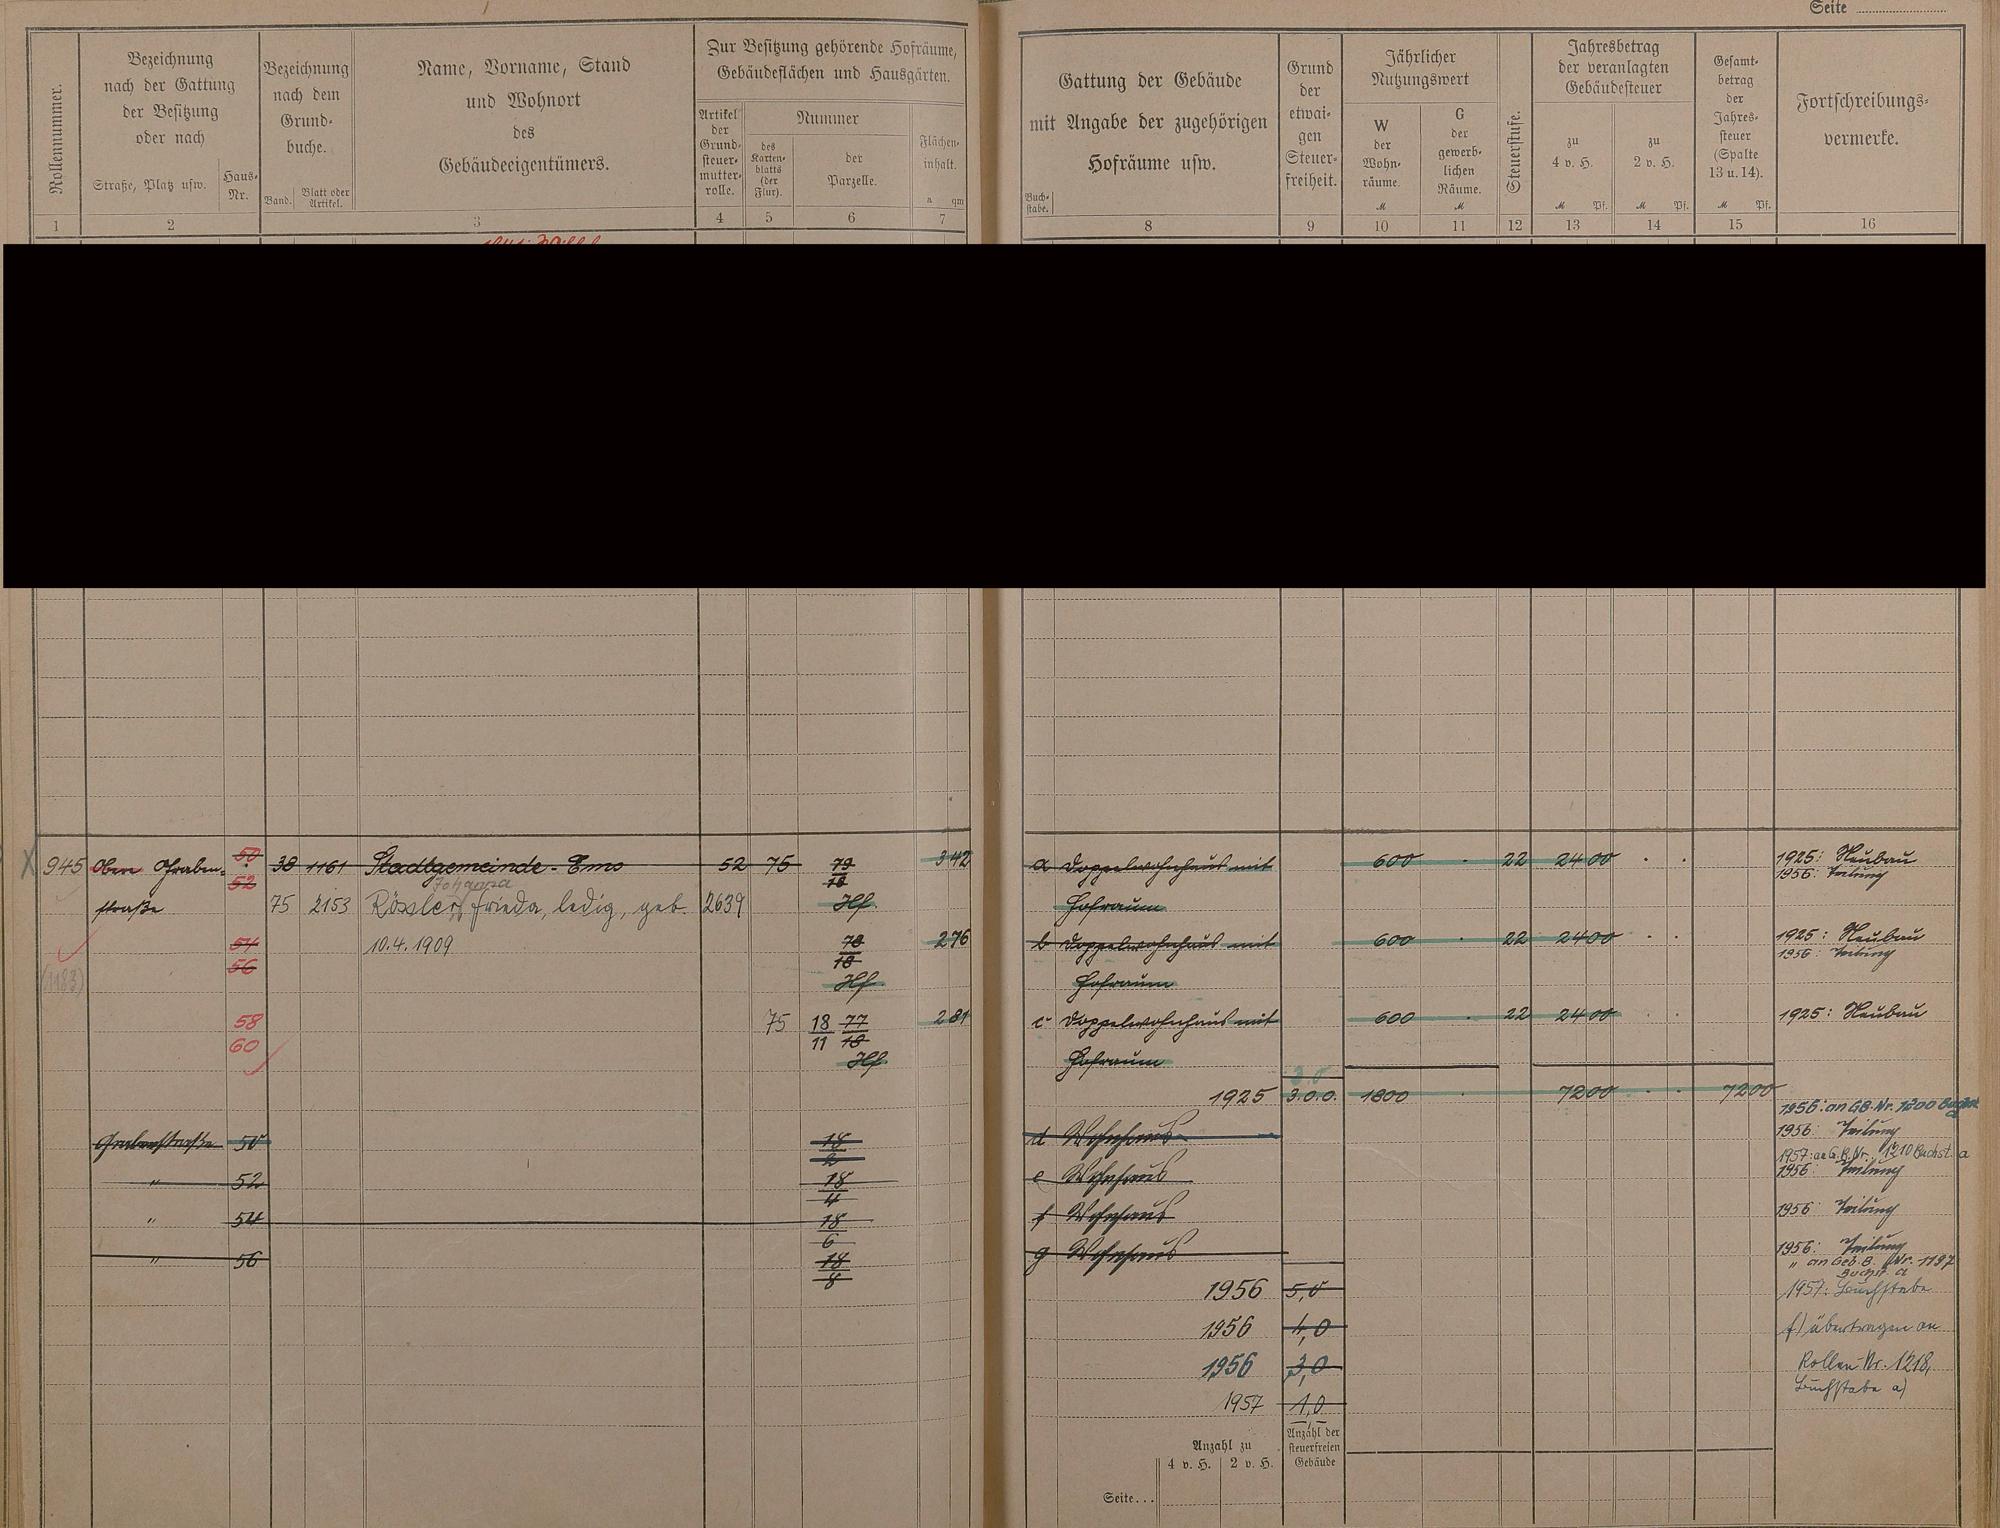 Seite
Rollennummer.
Bezeichnung
nach der Gattung
der Besitzung
oder nach
Straße, Platz usw.
Haus-
Nr.
Bezeichnung
nach dem
Grund-
buche.
Band.
Blatt oder
Artikel.
Name, Vorname, Stand
und Wohnort
des
Gebäudeeigentümers.
Zur Besitzung gehörende Hofräume,
Gebäudeflächen und Hausgärten.
Artikel
der
Grund-
steuer-
mutter-
rolle.
Nummer
des
Karten-
blatts
(der
Flur).
der
Parzelle.
Flächen-
inhalt.
a qm
1 2 3 4 5 6 7
Gattung der Gebäude
mit Angabe der zugehörigen
Hofräume usw.
Buch-
stabe.
Grund
der
etwai-
gen
Steuer-
freiheit.
Jährlicher
Nutzungswert
W
der
Wohn-
räume.
M
G
der
gewerb-
lichen
Räume.
M
Steuerstufe.
Jahresbetrag
der veranlagten
Gebäudesteuer
zu
4 v. H.
M Pf.
zu
2 v. H.
M Pf.
Gesamt-
betrag
der
Jahres-
steuer
(Spalte
13 u. 14).
M Pf.
Fortschreibungs-
vermerke.
8 9 10 11 12 13 14 15 16
945 Obere Graben- 50 38 1161 Stadtgemeinde - Ems 52 75 79 342
52 18
Johanna
straße 75 2153 Rössler, Frieda, ledig, geb. 2639 Hf.
54 10.4.1909 78 276
56 18
(1183) Hf.
58 75 18 77 281
60 11 18
Hf.
Grabenstraße 50 18
2
" 52 18
4
" 54 18
6
" 56 18
8
a Doppelwohnhaus mit 600 22 24 00 1925: Neubau
1956: Teilung
Hofraum
b Doppelwohnhaus mit 600 22 24 00 1925: Neubau
1956: Teilung
Hofraum
c Doppelwohnhaus mit 600 22 24 00 1925: Neubau
Hofraum
3.0
1925 3.0.0. 1800 72 00 72 00
1956: an GB. Nr. 1200
d Wohnhaus 1956: Teilung
1957: an G.B. Nr. 1210 Buchst. a
e Wohnhaus 1956: Teilung
f Wohnhaus 1956: Teilung
g Wohnhaus 1956: Teilung
" an Geb. B. Nr. 1197
Buchst. a
1956 5,0 1957: Buchstabe
1956 4,0 f) übertragen an
1956 3,0 Rollen-Nr. 1218,
Buchstabe a)
1957 1,0
Anzahl zu
4 v. H. 2 v. H.
Anzahl der
steuerfreien
Gebäude
Seite...